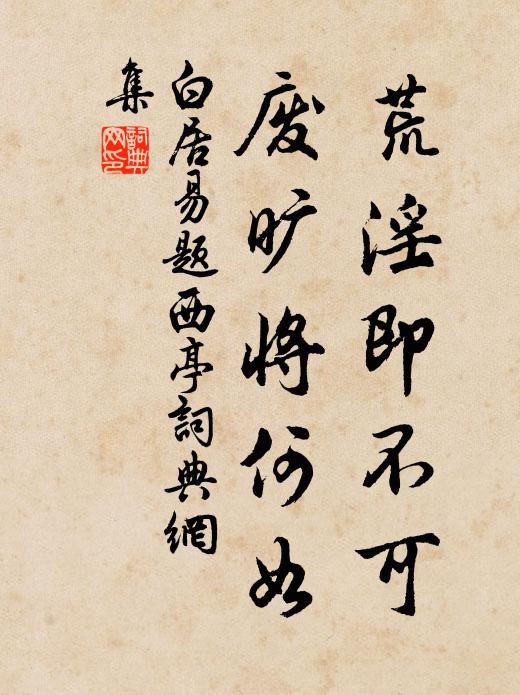 荒淫即不可
废旷将何如
白居易题西亭詞典網
集
詞典
网印